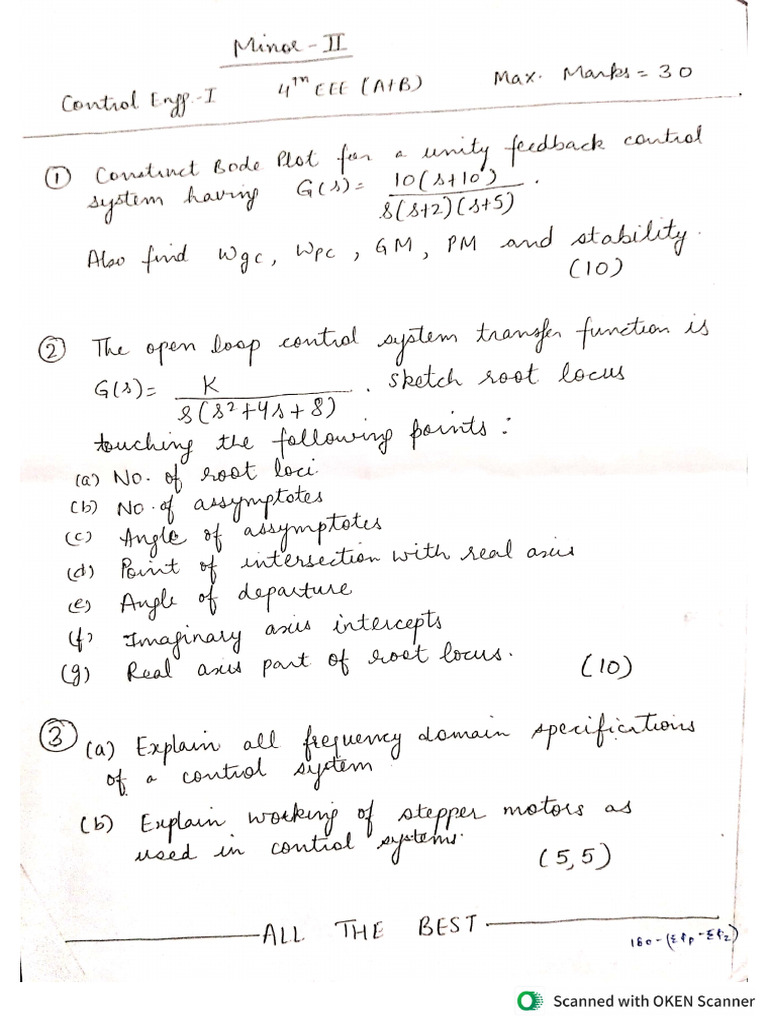 Minor - II
Control Engg.-I 4th EEE (A+B) Max. Marks = 30
① Construct Bode Plot for a unity feedback control
system having G(s) = 10(s+10) / s(s+2)(s+5) .
Also find Wgc, Wpc, GM, PM and stability.
(10)
② The open loop control system transfer function is
G(s) = K / s(s²+4s+8) . sketch root locus
touching the following points :
(a) No. of root loci.
(b) No. of assymptotes
(c) Angle of assymptotes
(d) Point of intersection with real axis
(e) Angle of departure
(f) Imaginary axis intercepts
(g) Real axis part of root locus. (10)
③ (a) Explain all frequency domain specifications
of a control system
(b) Explain working of stepper motors as
used in control systems.
(5,5)
ALL THE BEST
180-(Σφp-Σφz)
Scanned with OKEN Scanner